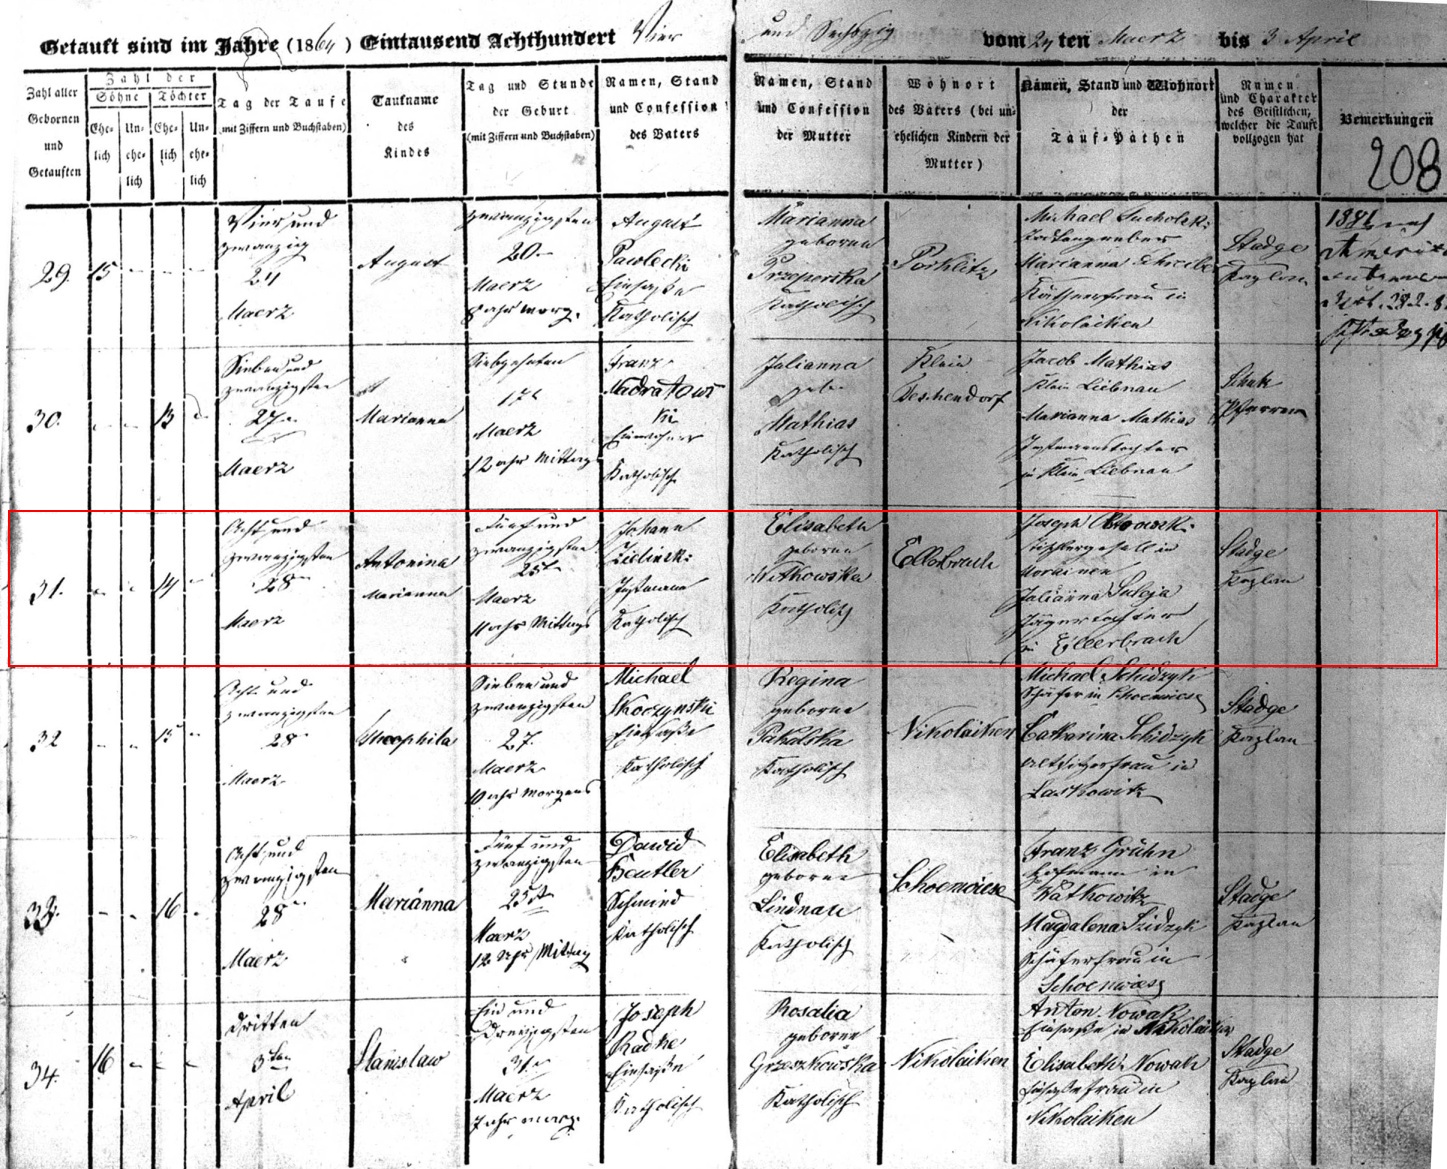 Getauft sind im Jahre (1864) Eintausend Achthundert Vier und Sechszig vom 24 ten Maerz bis 3 April
Zahl aller Gebornen und Getauften
Zahl der
Söhne
Töchter
Ehe-lich
Un-ehe-lich
Ehe-lich
Un-ehe-lich
Tag der Taufe
(mit Ziffern und Buchstaben)
Taufname
des
Kindes
Tag und Stunde
der Geburt
(mit Ziffern und Buchstaben)
Namen, Stand
und Confession
des Vaters
Namen, Stand
und Confession
der Mutter
Wohnort
des Vaters (bei un-
ehelichen Kindern der
Mutter)
Namen, Stand und Wohnort
der
Tauf-Pathen
Namen
und Charakter
des Geistlichen,
welcher die Taufe
vollzogen hat
Bemerkungen
208
29.
15
Vier und
zwanzig
24
Maerz
August
zwanzigsten
20
Maerz
8 Uhr Morg.
August
Pawlecki
Einsaße
Katholisch
Marianna
geborne
Katholisch
Porklitz
Michael
Marianna
Käthnerfrau in
Nikolaiken
Stadge
Kaplan
1881
30.
13
Sieben und
zwanzigsten
27
Maerz
Marianna
Siebzehnten
17
Maerz
12 Uhr Mittag
Franz
Nadratows
ki
Einwohner
Katholisch
Julianna
geb.
Mathias
Katholisch
Klein
Teschendorf
Jacob Mathias
Klein Liebnau
Marianna Mathias
in Klein Liebnau
Pfarrer
31.
14
Acht und
zwanzigsten
28
Maerz
Antonina
Marianna
Fünf und
zwanzigsten
25
Maerz
11 Uhr Mittags
Johann
Zielinski
Instmann
Katholisch
Elisabeth
geborne
Witkowska
Katholisch
Ellerbruch
Joseph
Tischlergesell in
Morainen
Julianna Suleja
Jägertochter
in Ellerbruch
Stadge
Kaplan
32
15
Acht und
zwanzigsten
28
Maerz
Theophila
Sieben und
zwanzigsten
27.
Maerz
10 Uhr Morgens
Michael
Skoczynski
Einsaße
Katholisch
Regina
geborne
Pakalska
Katholisch
Nikolaiken
Michael Schidzyk
Schäfer in Schoenwiese
Catharina Schidzyk
Altsitzerfrau in
Laskowitz
Stadge
Kaplan
33.
16
Acht und
zwanzigsten
28
Maerz
Marianna
Fünf und
zwanzigsten
25
Maerz
12 Uhr Mittag
Dawid
Beutler
Schmied
Katholisch
Elisabeth
geborne
Lindnau
Katholisch
Schoenwiese
Franz Grühn
in
Watkowitz
Magdalena Szidzyk
Schäferfrau in
Schoenwiese
Stadge
Kaplan
34.
16
dritten
3ten
April
Stanislaw
Ein und
dreizigsten
31
Maerz
7 Uhr Morg.
Joseph
Radke
Einsaße
Katholisch
Rosalia
geborne
Grzeszkowska
Katholisch
Nikolaiken
Anton Nowak
Einsaße in Nikolaiken
Elisabeth Nowak
Einsaße frau in
Nikolaiken
Stadge
Kaplan